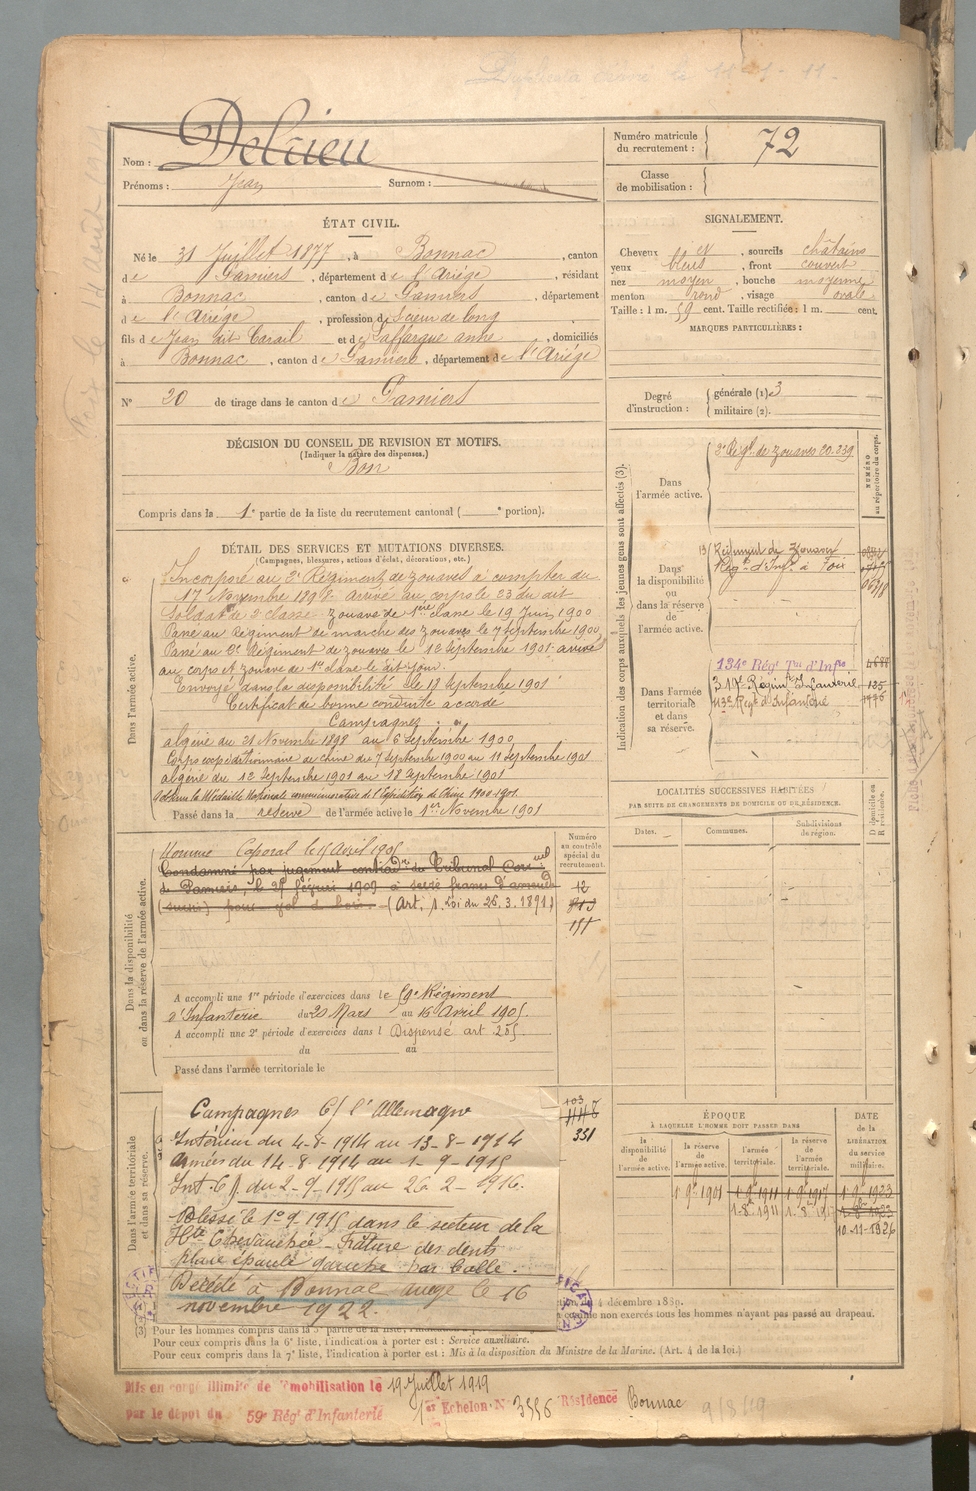 Duplicata délivré le 11-1-11.
Nom : Delrieu
Prénoms : Jean Surnom :
Numéro matricule du recrutement : 72
Classe de mobilisation :
ÉTAT CIVIL.
Né le 31 Juillet 1877, à Bonnac, canton
de Pamiers, département de l'Ariège, résidant
à Bonnac, canton de Pamiers, département
de l'Ariège, profession de Scieur de long
fils de Jean dit Carail et de Laffargue anne, domiciliés
à Bonnac, canton de Pamiers, département de l'Ariège
N° 20 de tirage dans le canton de Pamiers
SIGNALEMENT.
Cheveux et, sourcils châtains
yeux bleus, front couvert
nez moyen, bouche moyenne
menton rond, visage ovale
Taille : 1 m. 59 cent. Taille rectifiée : 1 m. cent.
MARQUES PARTICULIÈRES :
Degré d'instruction : générale (1) 3
militaire (2).
DÉCISION DU CONSEIL DE REVISION ET MOTIFS.
(Indiquer la nature des dispenses.)
Bon
Compris dans la 1e partie de la liste du recrutement cantonal ( e portion).
DÉTAIL DES SERVICES ET MUTATIONS DIVERSES.
(Campagnes, blessures, actions d'éclat, décorations, etc.)
Dans l'armée active.
Incorporé au 2e Régiment de zouaves à compter du
17 Novembre 1898 arrivé au corps le 23 du dit
Soldat de 2e classe zouave de 1ère classe le 19 Juin 1900
Passé au Régiment de marche des zouaves le 7 Septembre 1900
Passé au 2e Régiment de zouaves le 12 Septembre 1901 arrivé
au corps et zouave de 1re classe le dit jour.
Envoyé dans la disponibilité le 19 Septembre 1901
Certificat de bonne conduite accordé
Campagnes :
algérie du 21 Novembre 1898 au 6 Septembre 1900
Corps expéditionnaire de chine du 7 Septembre 1900 au 11 Septembre 1901
algérie du 12 Septembre 1901 au 18 Septembre 1901
obtenu la Médaille Nationale commémorative de l'Expédition de Chine 1900-1901.
Passé dans la réserve de l'armée active le 1er Novembre 1901
Indication des corps auxquels les jeunes gens sont affectés (3).
NUMÉRO au répertoire du corps.
Dans l'armée active.
2e Régt de zouaves 20.239
Dans la disponibilité ou dans la réserve de l'armée active.
Régiment de Zouaves
Régt d'Infie à Foix
Dans l'armée territoriale et dans sa réserve.
134e Régt Tal d'Infie
317e Régimt Infanterie 125
113e Régt d'Infanterie 1776
LOCALITÉS SUCCESSIVES HABITÉES
PAR SUITE DE CHANGEMENTS DE DOMICILE OU DE RÉSIDENCE.
Dates.
Communes.
Subdivisions de région.
D domicile ou R résidence.
Dans la disponibilité ou dans la réserve de l'armée active.
Numéro au contrôle spécial du recrutement.
Nommé Caporal le 15 Avril 1905
Condamné par jugement contradre du Tribunal Corrnel
de Pamiers, le 25 février 1903 à seize francs d'amende
(sursis) pour vol de bois. - (Art. 1. Loi du 26.3.1891)
12
813
151
A accompli une 1re période d'exercices dans le 59e Régiment
d'Infanterie du 20 Mars au 15 Avril 1905.
A accompli une 2e période d'exercices dans l Dispensé art
du au
Passé dans l'armée territoriale le
Dans l'armée territoriale et dans sa réserve.
Campagnes C/ l'Allemagne
Intérieur du 4-8-1914 au 13-8-1914
Armées du 14-8-1914 au 1-9-1915
Int. C/ du 2-9-1915 au 26.2-1916.
Blessé le 1er 9-1915 dans le secteur de la
Hte Chevauchée - Frature des dents
plaie épaule gauche par balle.
Décédé à Bonnac le 16
novembre 1922.
103
351
ÉPOQUE
À LAQUELLE L'HOMME DOIT PASSER DANS
la disponibilité de l'armée active.
la réserve de l'armée active.
l'armée territoriale.
la réserve de l'armée territoriale.
DATE de la LIBÉRATION du service militaire.
1-9bre 1901
1-9bre 1911
1-9bre 1917
1-9bre 1923
1-8bre 1911
1-8bre 1917
10-11-1926
4 décembre 1889.
non exercés tous les hommes n'ayant pas passé au drapeau.
Pour les hommes compris dans la 5e partie de la liste, l'
Pour ceux compris dans la 6e liste, l'indication à porter est : Service auxiliaire.
Pour ceux compris dans la 7e liste, l'indication à porter est : Mis à la disposition du Ministre de la Marine. (Art. 4 de la loi.)
Mis en congé illimité de démobilisation le 19 Juillet 1919
par le dépôt du 59e Régt d'Infanterie 1er Echelon N° 3556 Résidence Bonnac
9/8/19